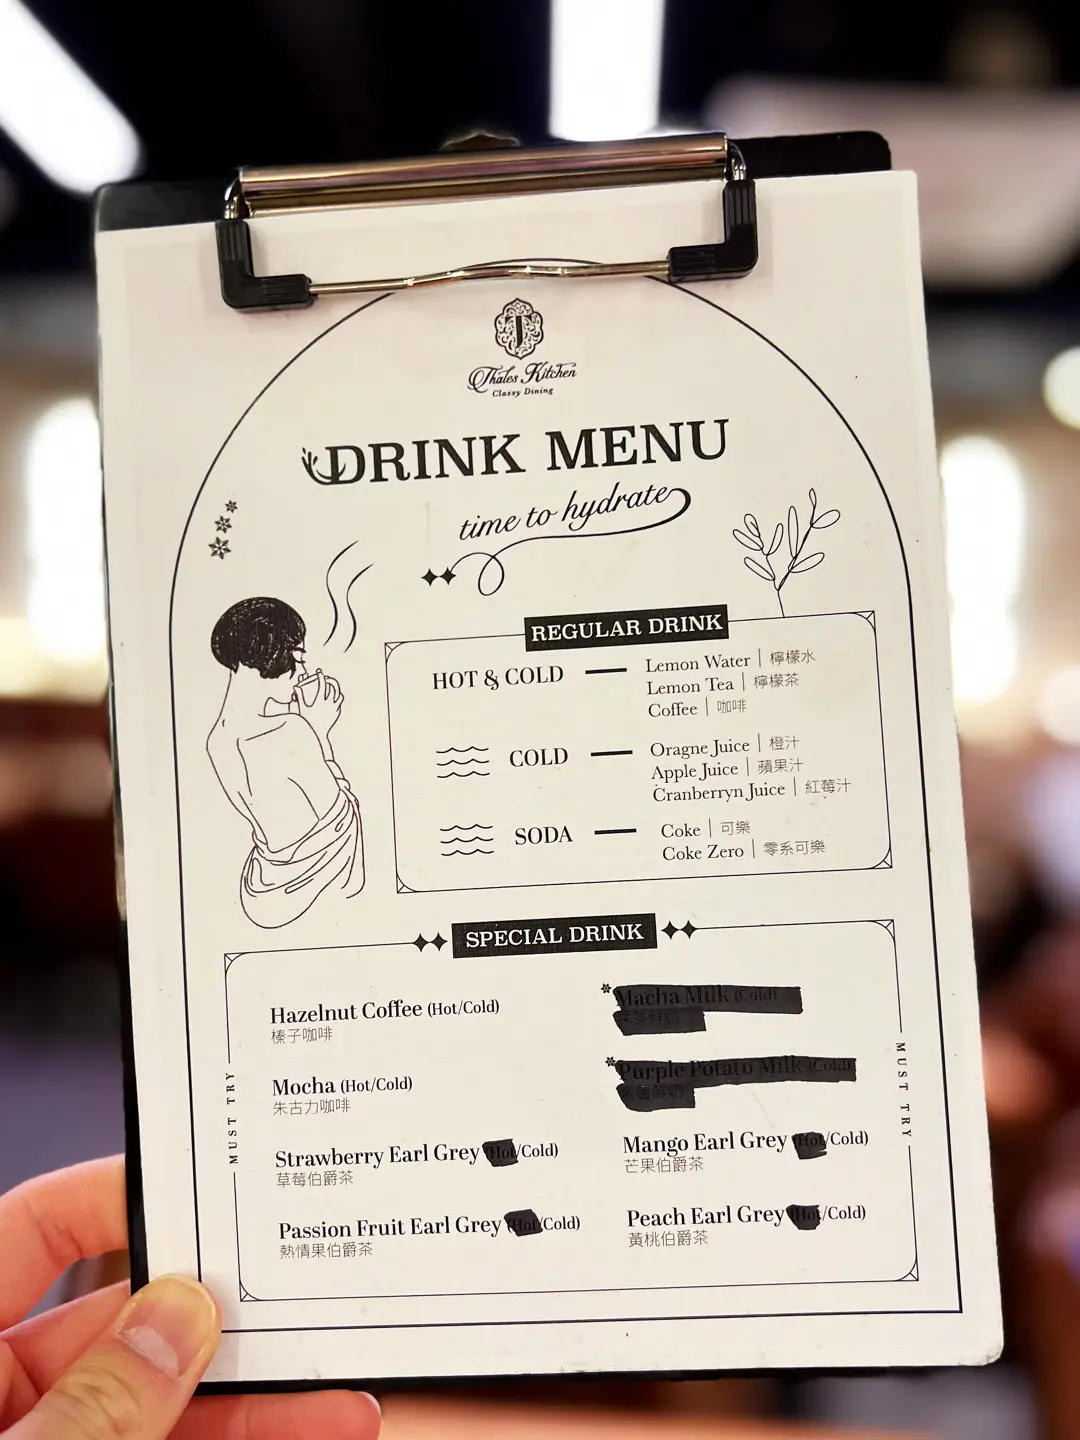 T
Thales Kitchen
Classy Dining
DRINK MENU
time to hydrate
REGULAR DRINK
HOT & COLD
Lemon Water | 檸檬水
Lemon Tea | 檸檬茶
Coffee | 咖啡
COLD
Oragne Juice | 橙汁
Apple Juice | 蘋果汁
Cranberryn Juice | 紅莓汁
SODA
Coke | 可樂
Coke Zero | 零系可樂
SPECIAL DRINK
MUST TRY
Hazelnut Coffee (Hot/Cold)
榛子咖啡
Mocha (Hot/Cold)
朱古力咖啡
Strawberry Earl Grey (Hot/Cold)
草莓伯爵茶
Passion Fruit Earl Grey (Hot/Cold)
熱情果伯爵茶
Macha Milk (Cold)
Purple Potato Milk (Cold)
Mango Earl Grey (Hot/Cold)
芒果伯爵茶
Peach Earl Grey (Hot/Cold)
黃桃伯爵茶
MUST TRY